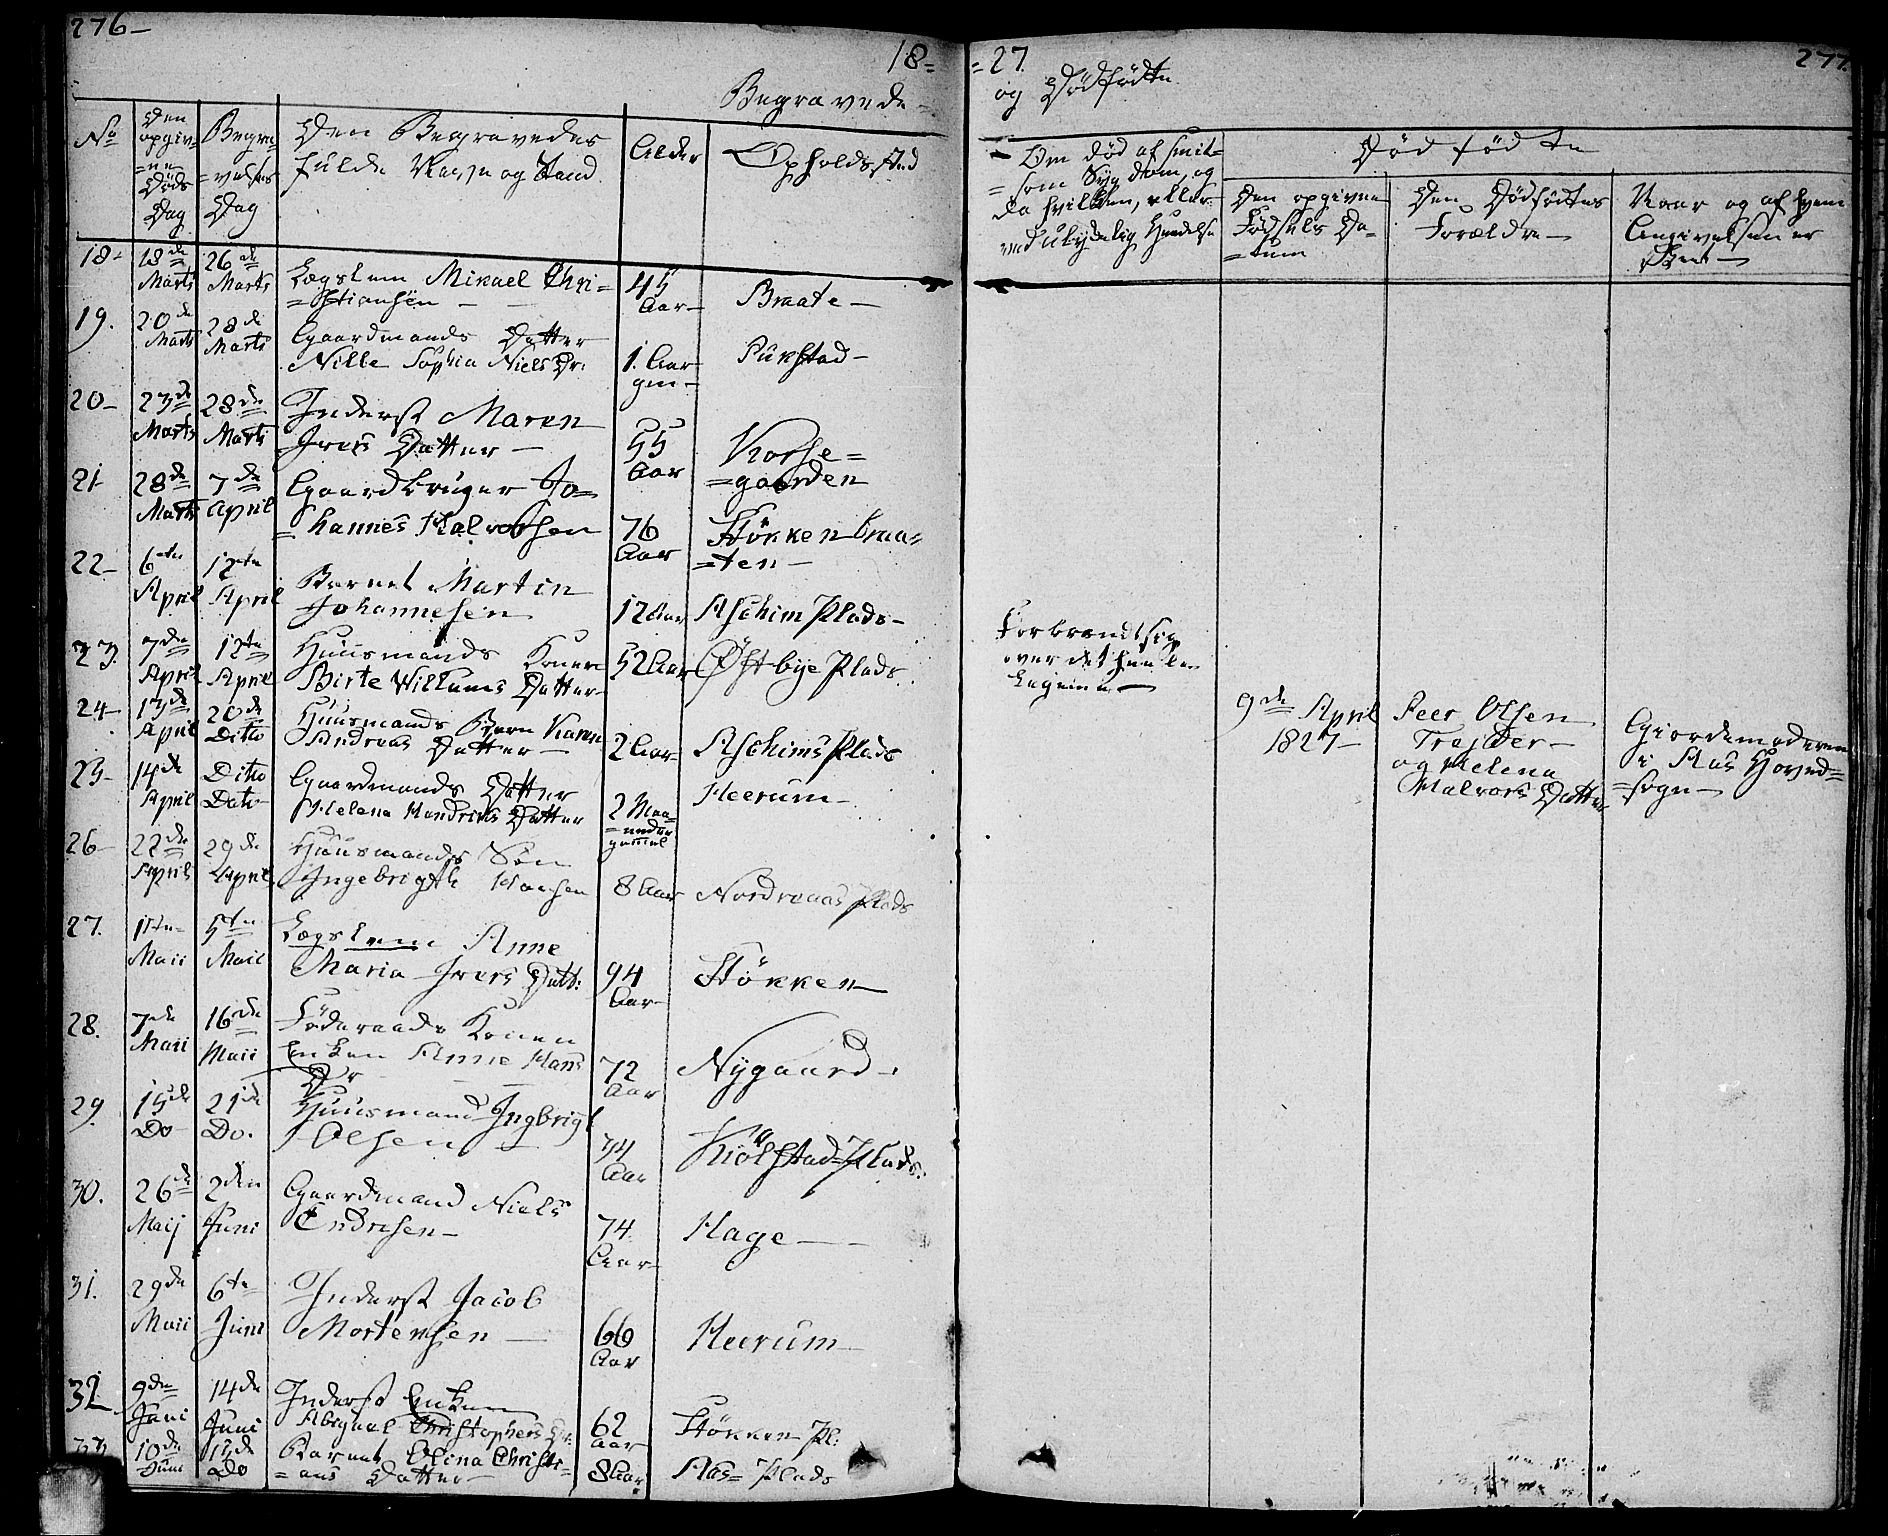 276-
18-
Begravede-
No
Den opgivne Døds Dag
Begravelses Dag
Den Begravedes
fulde Navn og Stand
Alder
Opholdsstæd
18- 18de Marts 26de Marts Lægslem Mikael Chri=
=stiansen - 45 Aar- Braate-
19. 20de Marts 28de Marts Gaardmands Datter
Nille Sophia Niels Dr. 1. Aar gm- Sukstad-
20- 23de Marts 28de Marts Inderst Maren
Ivers Datter- 55 Aar Korse=
=gaarden
21- 28de Marts 7de April Gaardbruger Jo=
=hannes Halvorsen 76 Aar Støkkenbraa=
=ten-
22- 6te April 12te April Barnet Martin
Johannesen 12 Aar Aschim Plads-
23. 7de April 12te April Huusmands Konen
Birte Willums Datter 52 Aar Østbye Plads
24- 13de April 20de Ditto Huusmands Barn Karen
Andreas Datter- 2 Aar- Aschims Plads
25- 14de April Ditto Dato- Gaardmands Datter
Helena Hendrichs Datter 2 Maa=
=neder
gammel Heerum-
26- 22de April 29de April Huusmands Søn
Ingebrigth Hansen 8 Aar Nordraaas Plads
27. 1te Maii 5te Maii Lægslem Anne
Maria Ivers Datt: 94 Aar- Støkken
28. 7de Maii 16de Maii Føderaads Konen
Enken Anne Hans
Dr 72 Aar Nygaard-
29. 15de Do 21de Do. Huusmand Ingbrigt
Olsen 74 Aar Kiølstad Plads.
30. 26de Maij 2den Juni Gaardmand Niels
Endresen- 74 Aar- Hage-
31. 29de Maii 6te Juni Inderst Jacob
Mortensen- 66 Aar Heerum
32 9de Juni 14de Juni Inderst Enken
Abigael Christophers Dr. 62 Aar Støkken Pl:
33 10de Juni Do Barnet Olina Christi=
=ans Datter- 8 Aar. Aas= Plads
=27.
277.
og Dødfødte
Om død af smit=
=som Sygdom, og
da hvilken, eller
ved ulydelig Hændelse
Dødfødte
Den opgivne
Fødsels Da=
=tum
Den Dødfødtes
Forældre-
Naar og af hvem
Angivelsen er
skeet-
Forbrændt sig
over det heele
Legeme-
9de April
1827-
Peer Olsen
Trejder-
og Helena
Halvors Datter
Giordemoderen
i Aas Hoved=
=sogn-